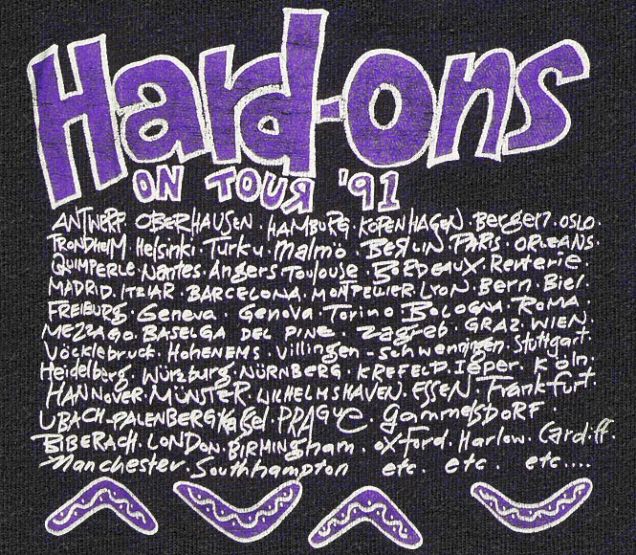 Hard-ons
ON TOUR '91
ANTWERP. OBERHAUSEN. HAMBURG. KOPENHAGEN. Bergen. OSLO.
TRONDHEIM. Helsinki. Turku. Malmö. BERLIN. PARIS. ORLEANS.
QUIMPERLE. Nantes. Angers Toulouse. BORDEAUX. Renterie.
MADRID. ITZIAR. BARCELONA. MONTPELLIER. LYON. Bern. Biel.
FREIBURG. Geneva. Genova. Torino BOLOGNA. ROMA.
MEZZAGO. BASELGA DEL PINE. Zagreb. GRAZ. WIEN.
Vöcklebruck. HOHENEMS. Villingen-Schwenningen. Stuttgart.
Heidelberg. Würzburg. NÜRNBERG. KREFELD. Ieper. KÖLN.
HANNOVER. MÜNSTER. WILHELMSHAVEN. ESSEN. Frankfurt.
UBACH-PALENBERG Kassel. PRAGUE. GammelsDORF.
BIBERACH. LONDON. BIRMINGham. OXFord. Harlow. Cardiff.
Manchester. Southhampton etc. etc. etc....